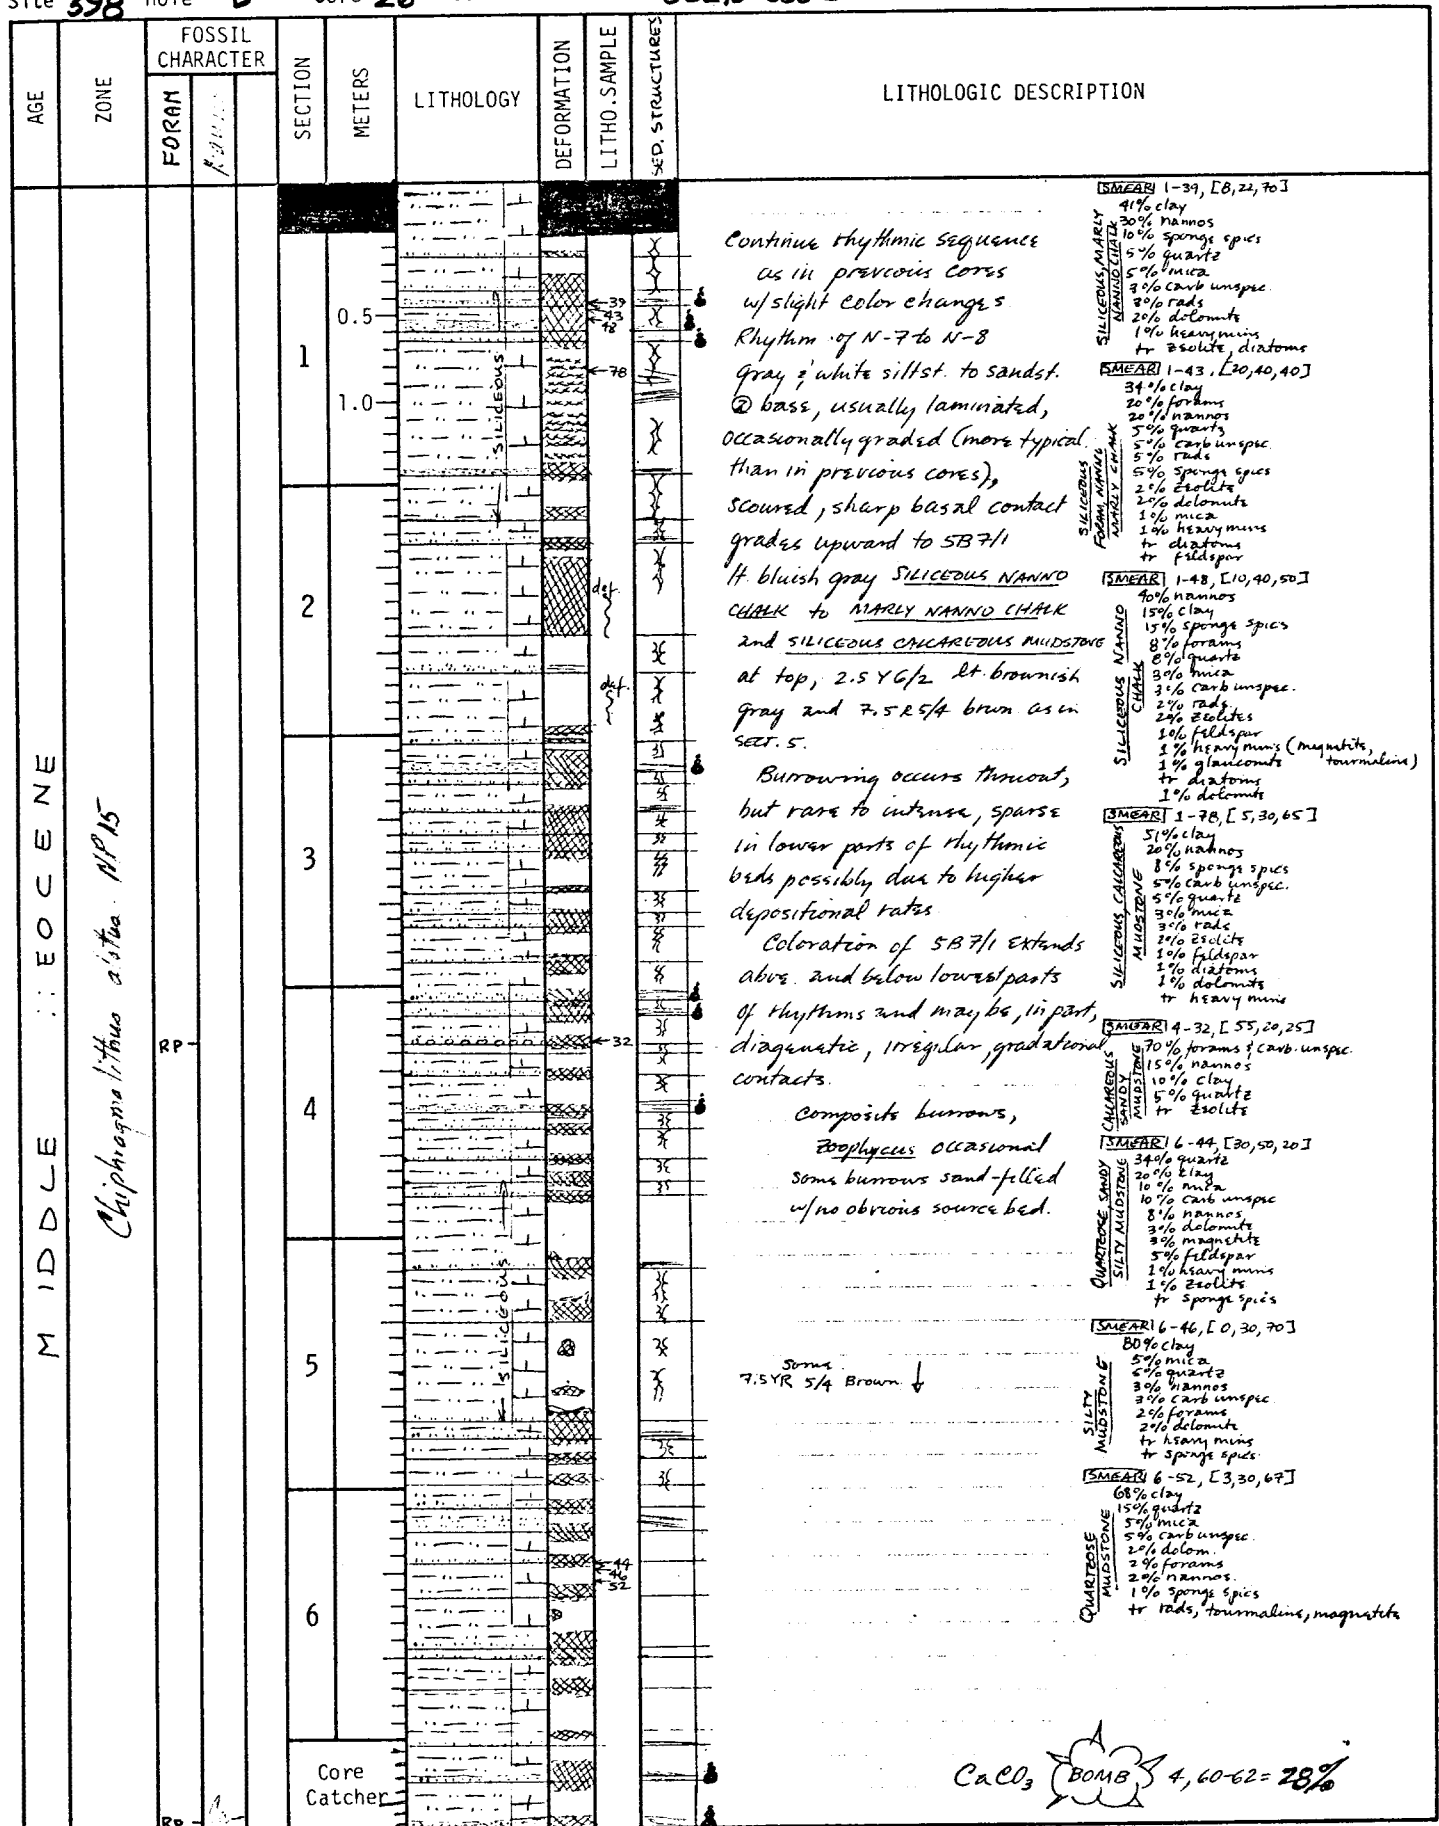 Site 398 Hole D Core 26
AGE
ZONE
FOSSIL
CHARACTER
FORAM
SECTION
METERS
LITHOLOGY
DEFORMATION
LITHO.SAMPLE
SED. STRUCTURES
LITHOLOGIC DESCRIPTION
MIDDLE EOCENE
NP15
RP
RP
1
2
3
4
5
6
Core
Catcher
0.5
1.0
SILICEOUS
SILICEOUS
39
43
48
78
def.
def.
32
44
46
52
Continue rhythmic sequence
as in previous cores
w/slight color changes
Rhythm of N-7 to N-8
gray & white siltst. to sandst.
@ base, usually laminated,
occasionally graded (more typical
than in previous cores),
scoured, sharp basal contact
grades upward to 5B7/1
lt. bluish gray SILICEOUS NANNO
CHALK to MARLY NANNO CHALK
and SILICEOUS CALCAREOUS MUDSTONE
at top, 2.5Y6/2 lt. brownish
gray and 7.5R5/4 brown as in
SECT. 5.
Burrowing occurs thruout,
but rare to intense, sparse
in lower parts of rhythmic
beds possibly due to higher
depositional rates
Coloration of 5B7/1 extends
above and below lowest parts
of rhythms and may be, in part,
diagenetic, irregular, gradational
contacts.
Composite burrows,
Zoophycus occasional
Some burrows sand-filled
w/no obvious source bed.
Some
7.5YR 5/4 Brown ↓
SMEAR 1-39, [8,22,70]
SILICEOUS, MARLY
NANNO CHALK
41% clay
30% nannos
10% sponge spics
5% quartz
5% mica
3% carb unspec.
3% rads
2% dolomite
1% heavy mins
tr zeolite, diatoms
SMEAR 1-43, [20,40,40]
SILICEOUS
FORAM, NANNO
MARLY CHALK
34% clay
20% forams
20% nannos
5% quartz
5% carb unspec.
5% rads
5% sponge spics
2% zeolite
2% dolomite
1% mica
1% heavy mins
tr diatoms
tr feldspar
SMEAR 1-48, [10,40,50]
SILICEOUS NANNO
CHALK
40% nannos
15% clay
15% sponge spics
8% forams
8% quartz
3% mica
3% carb unspec.
2% rads
2% zeolites
1% feldspar
1% heavy mins (magnetite,
tourmaline)
1% glauconite
tr diatoms
1% dolomite
SMEAR 1-78, [5,30,65]
SILICEOUS, CALCAREOUS
MUDSTONE
51% clay
20% nannos
8% sponge spics
5% carb unspec.
5% quartz
3% mica
3% rads
2% zeolite
1% feldspar
1% diatoms
1% dolomite
tr heavy mins
SMEAR 4-32, [55,20,25]
CALCAREOUS
SANDY
MUDSTONE
70% forams & carb. unspec.
15% nannos
10% clay
5% quartz
tr zeolite
SMEAR 6-44, [30,50,20]
QUARTZOSE SANDY
SILTY MUDSTONE
34% quartz
20% clay
10% mica
10% carb unspec
8% nannos
3% dolomite
3% magnetite
5% feldspar
1% heavy mins
1% zeolite
tr sponge spics
SMEAR 6-46, [0,30,70]
SILTY
MUDSTONE
80% clay
5% mica
5% quartz
3% nannos
3% carb unspec
2% forams
2% dolomite
tr heavy mins
tr sponge spics
SMEAR 6-52, [3,30,67]
QUARTZOSE
MUDSTONE
68% clay
15% quartz
5% mica
5% carb unspec.
2% dolom.
2% forams
2% nannos.
1% sponge spics
tr rads, tourmaline, magnetite
CaCO3 BOMB 4,60-62 = 28%